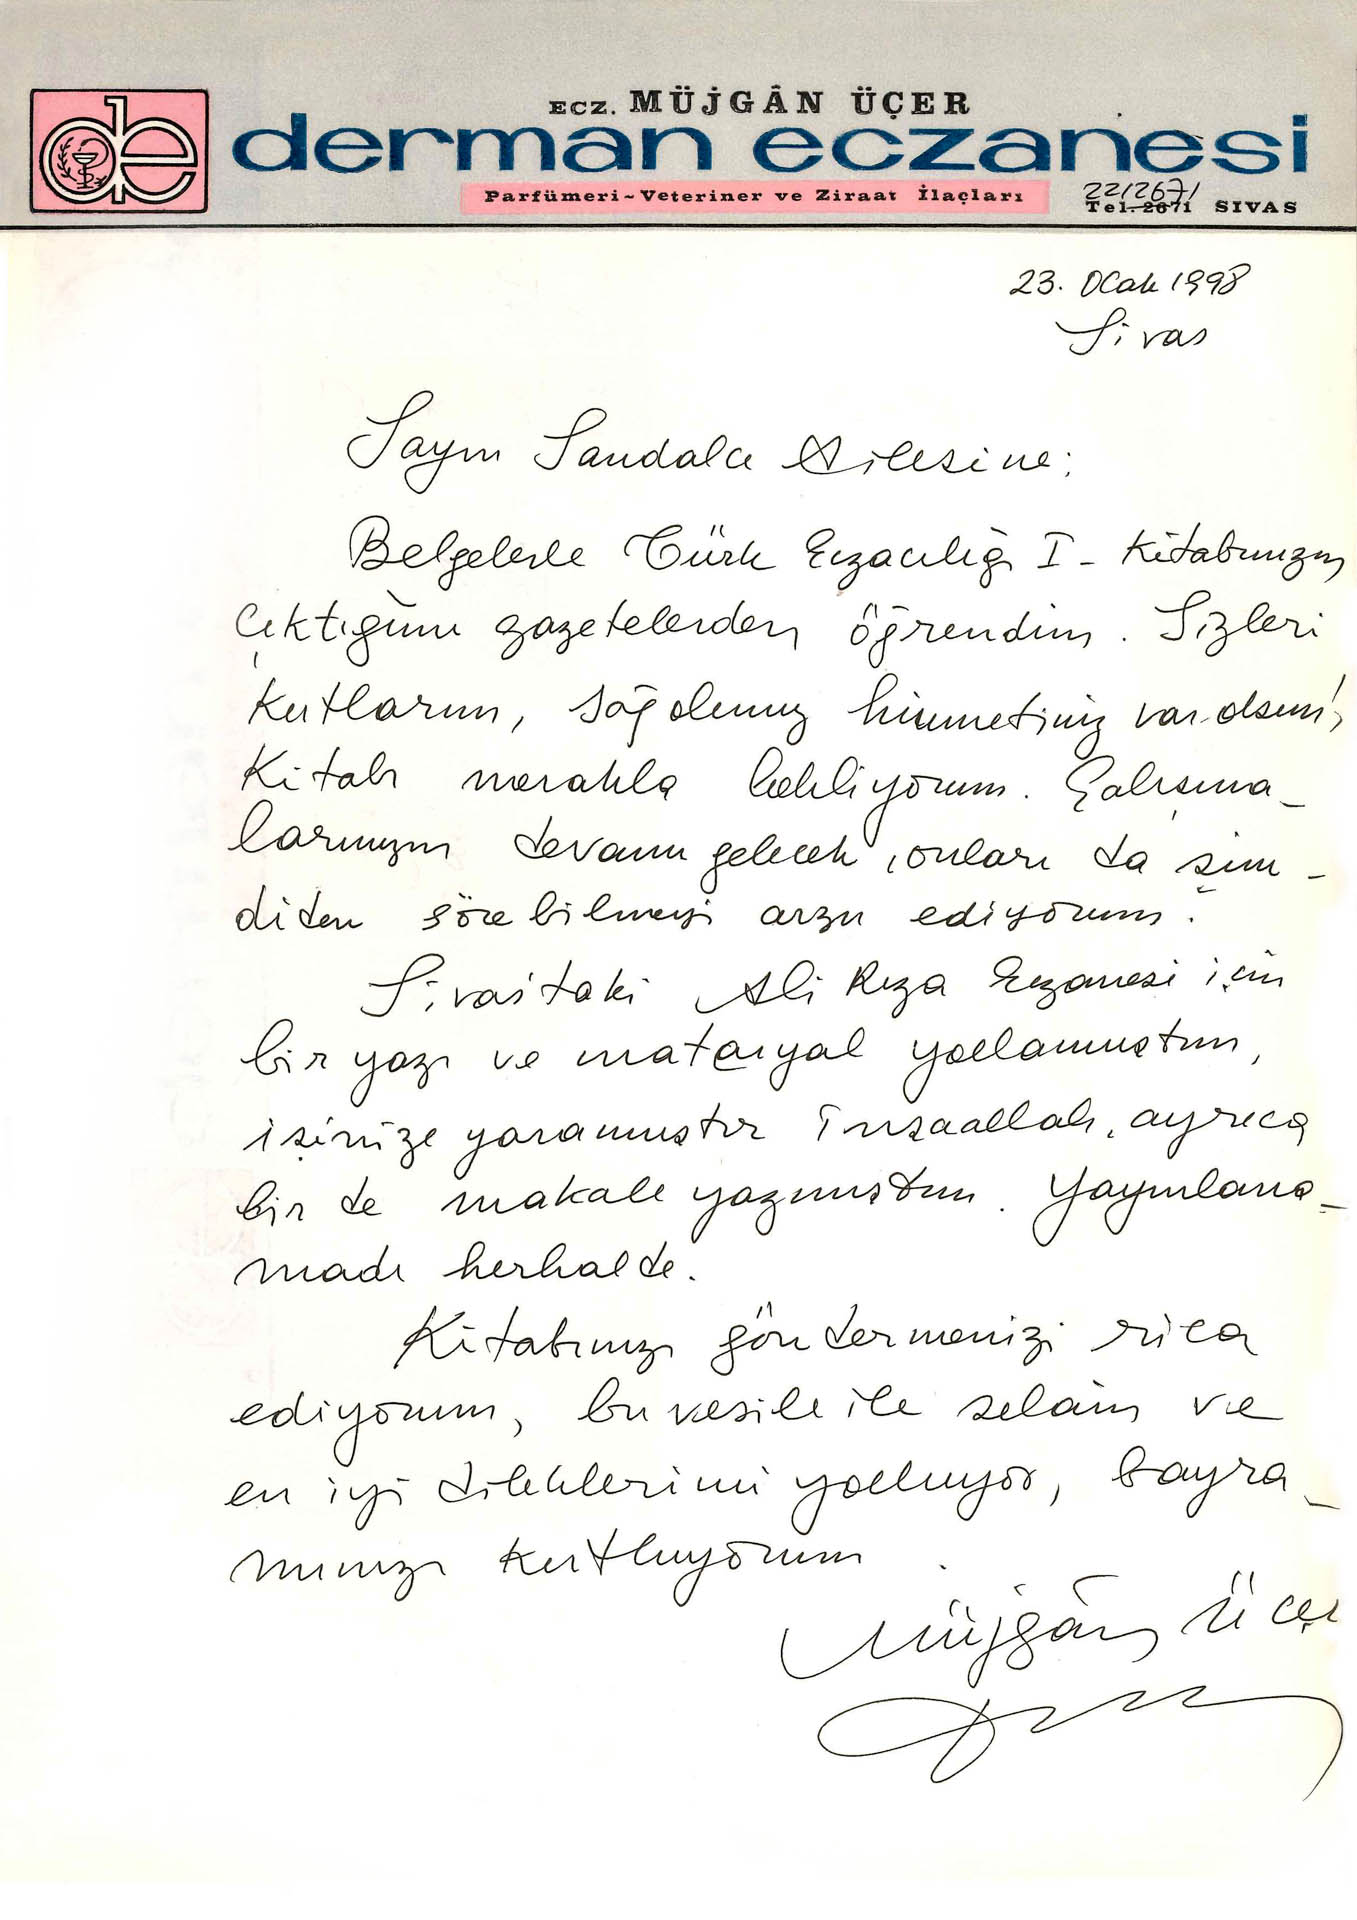 ECZ. MÜJGÂN ÜÇER
de
derman eczanesi
Parfümeri-Veteriner ve Ziraat İlaçları
2212671
Tel. 2671 SIVAS
23. Ocak 1998
Sivas
Sayın Sandalcı Ailesine;
Belgelerle Türk Eczacılığı I - Kitabınızın
çıktığını gazetelerden öğrendim. Sizleri
kutlarım, sağolunuz himmetiniz var olsun!
Kitabı merakla bekliyorum. Çalışma_
larınızın devamı gelecek, onları da şim_
diden görebilmeyi arzu ediyorum.
Sivas'taki Ali Rıza Eczanesi için
bir yazı ve mataryal yollamıştım,
işinize yaramıştır İnşaallah, ayrıca
bir de makale yazmıştım. Yayınlana_
madı herhalde.
Kitabınızı göndermenizi rica
ediyorum, bu vesile ile selâm ve
en iyi dileklerimi yolluyor, bayra_
mınızı kutluyorum
Müjgân Üçer